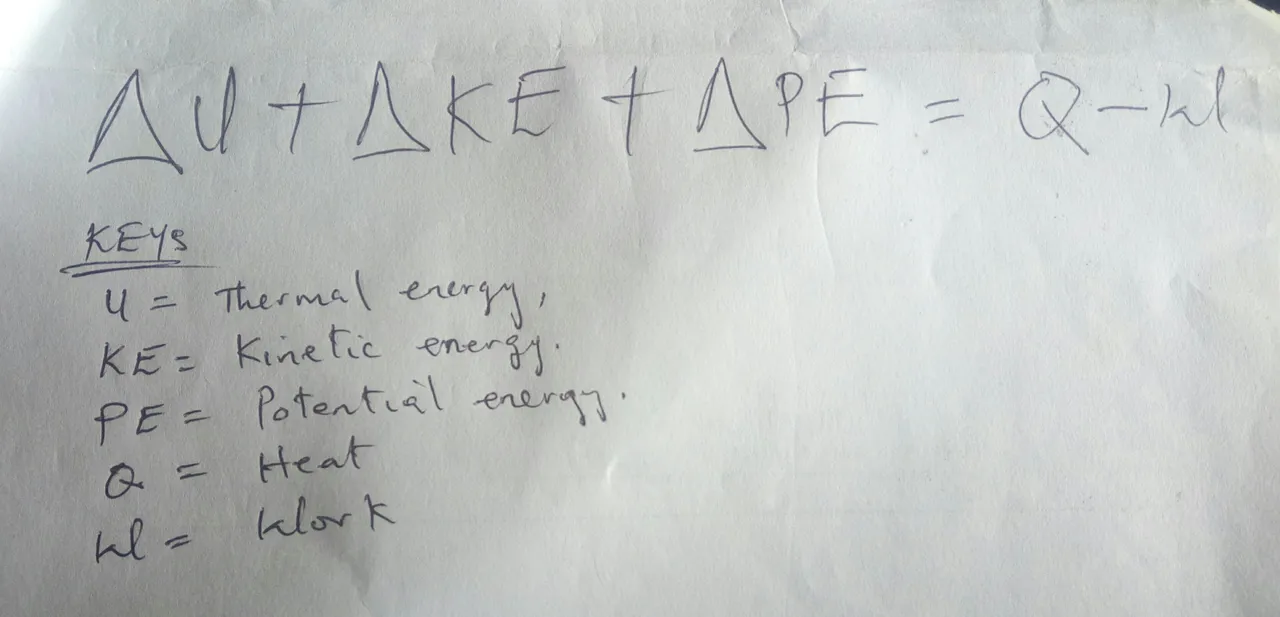 ΔU + ΔKE + ΔPE = Q - W
KEYS
U = Thermal energy,
KE = Kinetic energy.
PE = Potential energy.
Q = Heat
W = Work